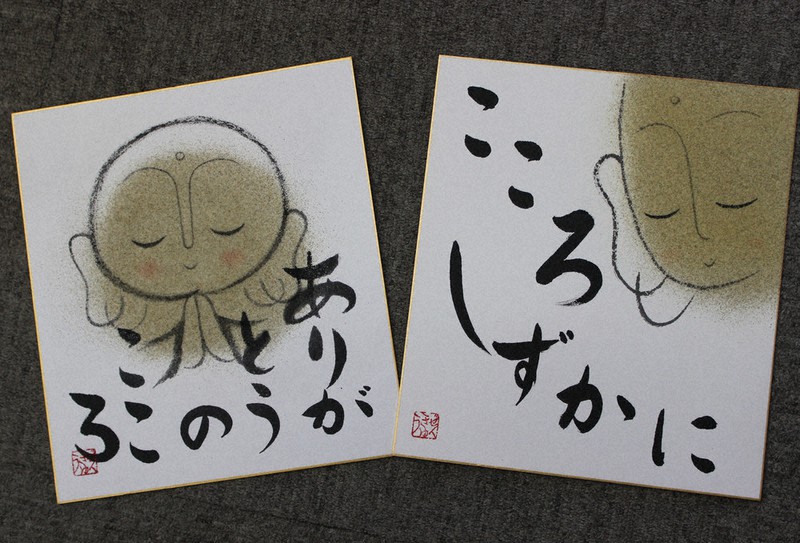 ありが
とう
の
ここ
ろ
こころ
しずかに